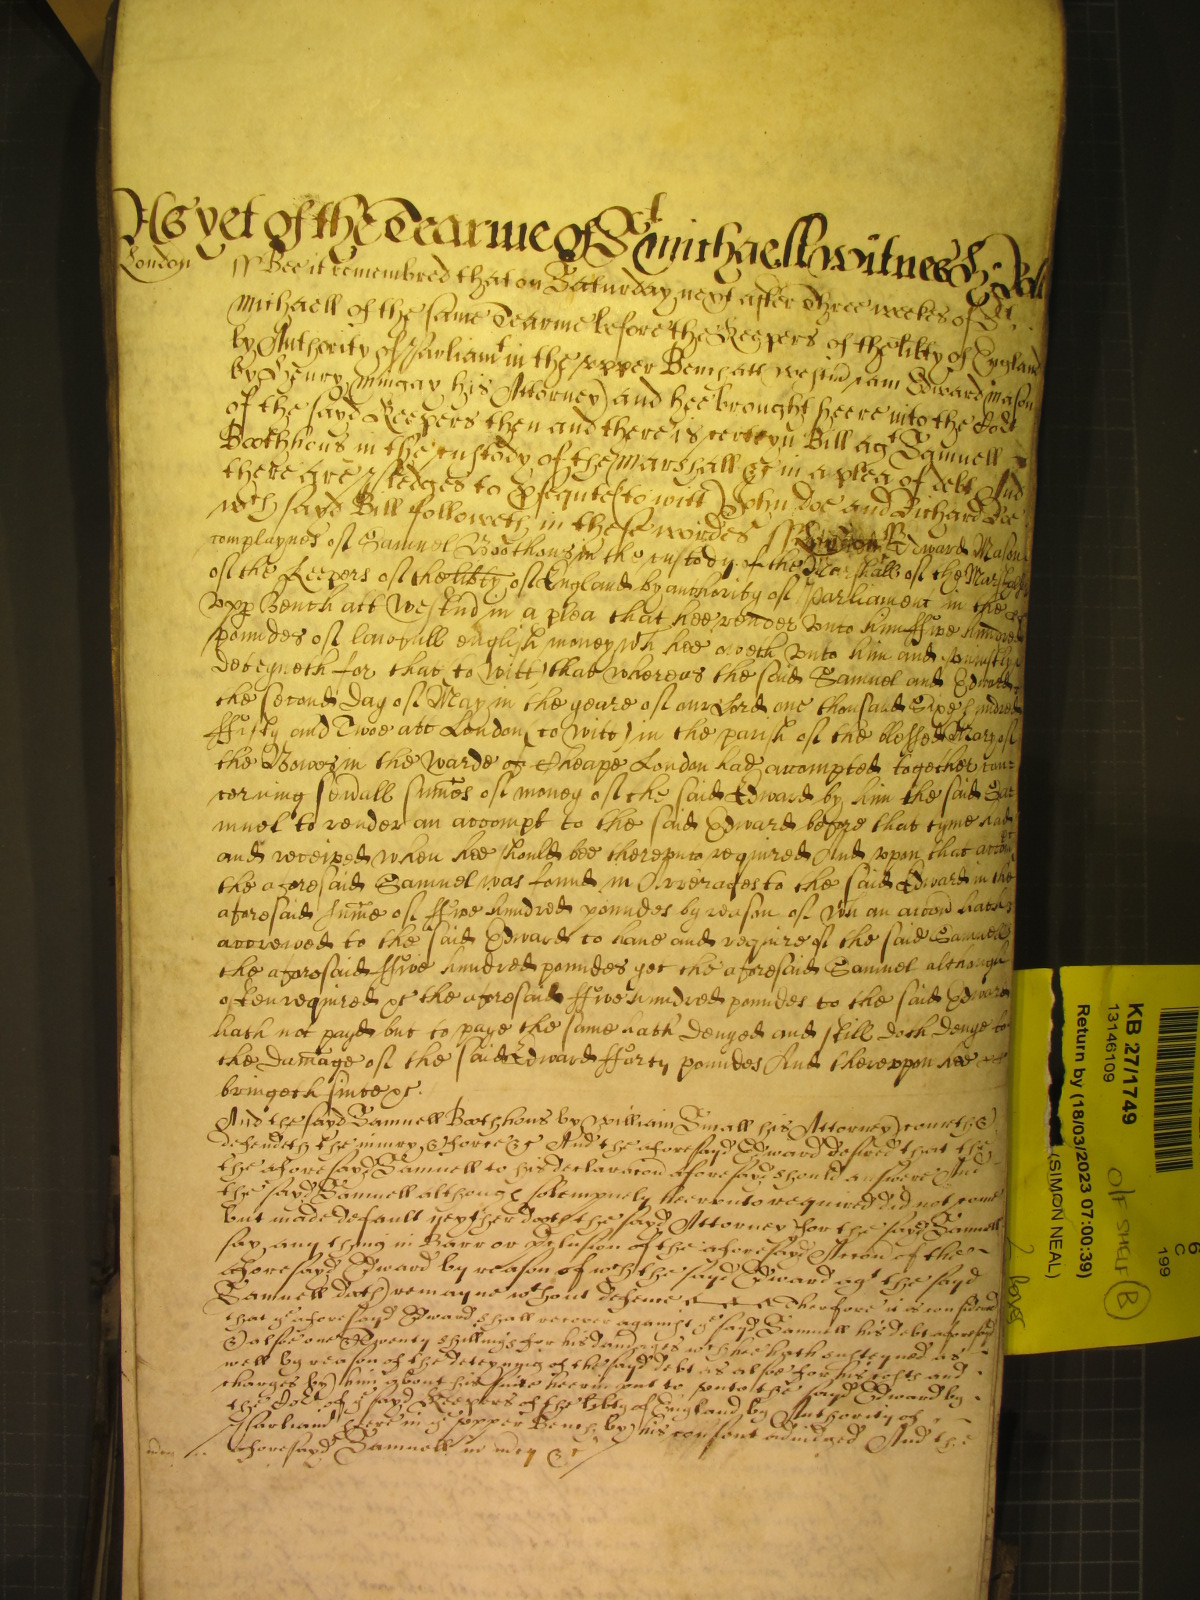 As yet of the Tearme of St michaell witnes H: Roll
London ss Bee it remembred that on Saturday next after Three weekes of St.
Michaell of the same Tearme before the Keepers of the libty of England
by Authority of Parliamt in the upper Bench att westm came Edward Mason
by Henry Mingay his Attorney and hee brought heere into the Cort
of the sayd Keepers then and there is certeyn Bill agt Samuell
Boothhous in the custody of the Marshall &c in a plea of debt And
there are pledges to psequte (to witt) John Doe and Richard Roe
wch sayd Bill followeth in these wordes ss London ss Edward Mason
complaynes of Samuel Boothous in the custody of the Marshall of the Marshalsey
of the Keepers of the libty of England by authority of Parliament in the
upp Bench att Westm in a plea that hee render unto him ffive hundred
poundes of lawfull english money wch hee oweth unto him and uniustly
deteyneth for that to Witt that whereas the said Samuel and Edward
the second Day of May in the yeare of our Lord one thousand Sixe hundred
ffifty and Twoe att London (to Witt) in the parish of the blessed Mary of
the Bowes in the Warde of Cheape London had accompted together con-
cerning sevall summes of money of the said Edward by him the said Sa-
muel to render an accompt to the said Edward before that tyme had
and receiped when hee should bee thereunto required And upon that accompt
the aforesaid Samuel was found in Arrerages to the said Edward in the
aforesaid summe of ffive hundred poundes by reason of wch an accon hath
accrewed to the said Edward to have and require of the said Samuel
the aforesaid ffive hundred poundes yet the aforesaid Samuel although
often required &c the aforesaid ffive hundred poundes to the said Edward
hath not payd but to paye the same hath denyed and still doth denye to
the damage of the said Edward fforty poundes And thereuppon hee
bringeth suite &c.
And the sayd Samuell Boothhous by William Small his Attorney cometh &
defendeth the iniury & force &c And the aforesayd Edward desired that the
the aforesayd Samuell to his declaracon aforesayd should answere And
the sayd Samuell although solempnely heerunto required did not come
but made default neyther doth the sayd Attorney for the sayd Samuell
say any thing in Barr or pclusion of the aforesayd Accon of the
aforesayd Edward by reason of wch the sayd Edward agt the sayd
Samuell doth remayne wthout defence Therfore it is considered
that ye aforesayd Edward shall recover against ye sayd Samuell his debt aforesayd
& alsoe one & Twenty shillings for his damages wch hee hath susteyned as
well by reason of the deteyning of the sayd debt as alsoe for his costs and
charges by him about his suite heerin to unto the sayd Edward by
the Cort of ye sayd Keepers of the libty of England by Authority of
Parliamt heere in ye upper Bench by his consent adiudged And the
aforesayd Samuell in mcy &c
KB 27/1749
13146109
Return by (18/03/2023 07:00:39)
(SIMON NEAL)
O/F SHELF B
2 boxes
6
C
199